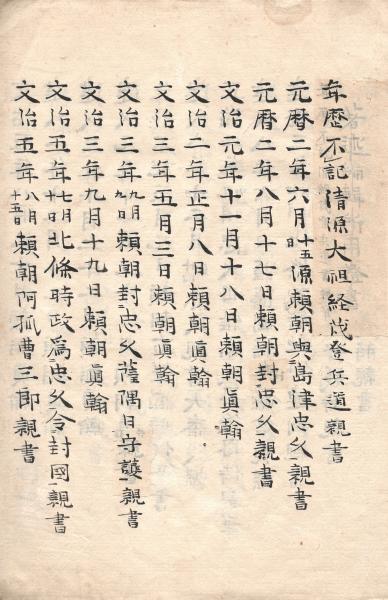 年歴不記清源大祖経伐登兵道親書
元暦二年六月十五日源頼朝與島津忠久親書
元暦二年八月十七日頼朝封忠久親書
文治元年十一月十八日頼朝眞翰
文治二年正月八日頼朝眞翰
文治三年五月三日頼朝眞翰
文治三年九月九日頼朝封忠久薩隅日守護親書
文治三年九月十九日頼朝眞翰
文治五年七月十日北條時政爲忠久令封國親書
文治五年八月十五日頼朝阿孤曹三郎親書